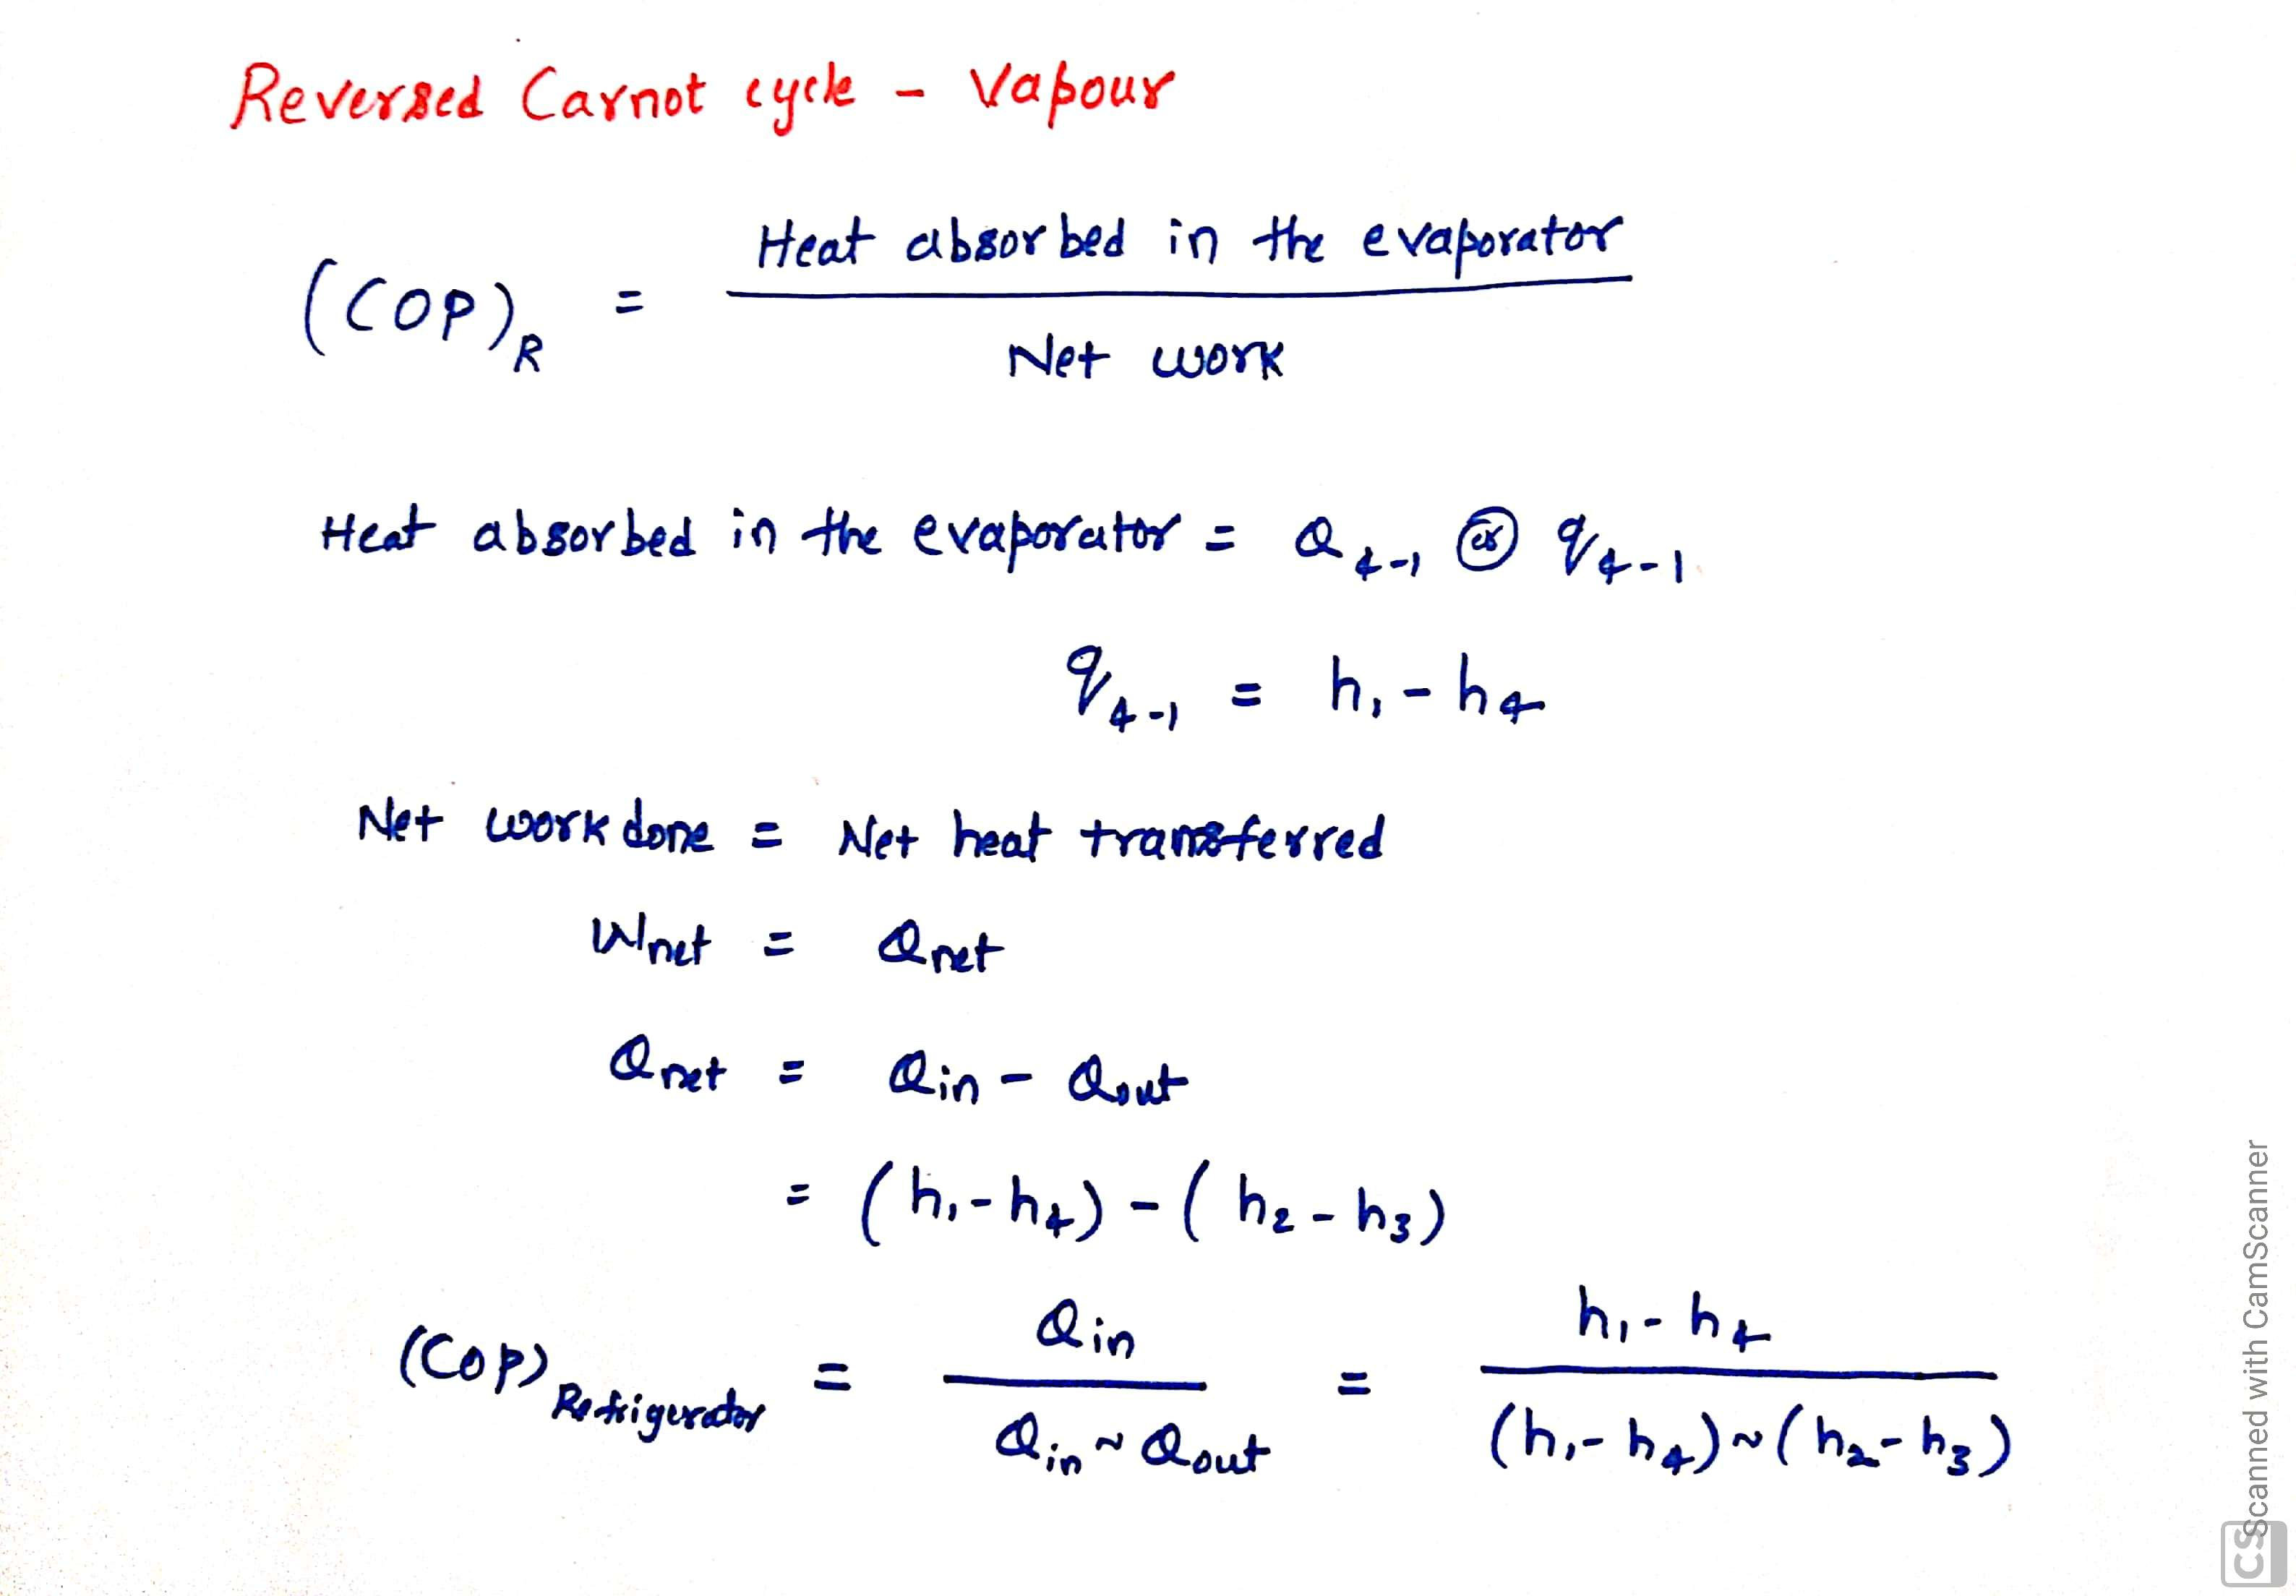 Reversed Carnot cycle - Vapour
(COP)R = Heat absorbed in the evaporator / Net work
Heat absorbed in the evaporator = Q4-1 (or) q4-1
q4-1 = h1 - h4
Net work done = Net heat transferred
Wnet = Qnet
Qnet = Qin - Qout
= (h1 - h4) - (h2 - h3)
(COP)Refrigerator = Qin / Qin ~ Qout = h1 - h4 / (h1 - h4) ~ (h2 - h3)
CS Scanned with CamScanner